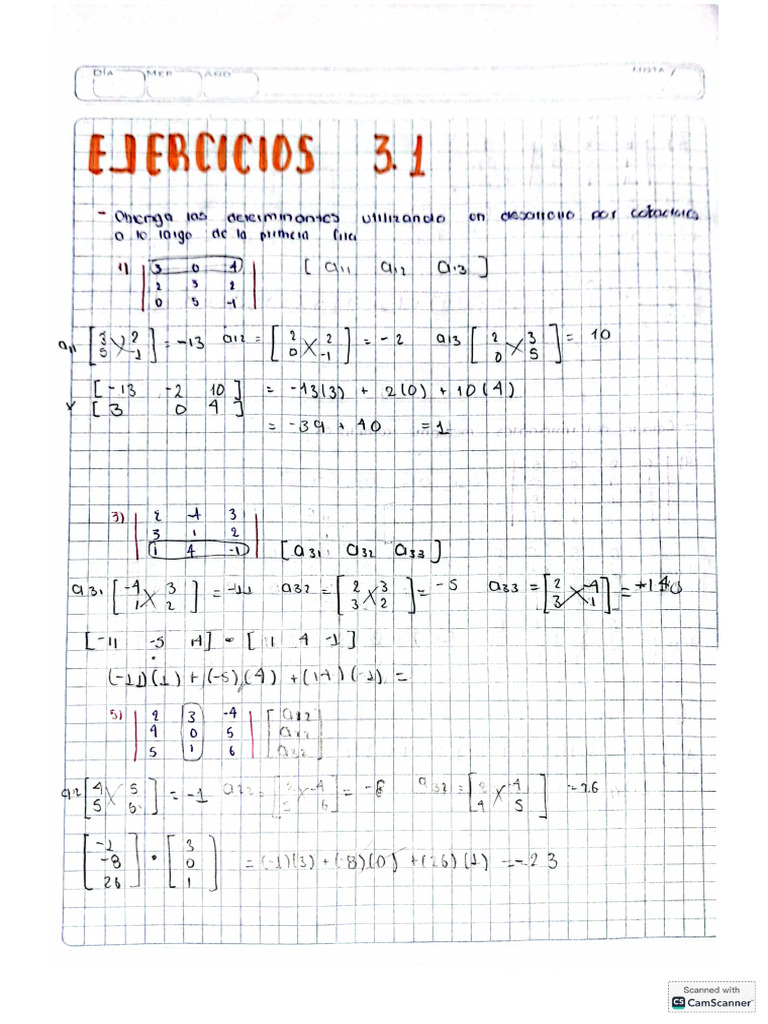 DÍA MES AÑO NOTA
EJERCICIOS 3.1
- Obtenga los determinantes utilizando un desarrollo por cofactores
a lo largo de la primera fila
1) | 3 0 4 | [ a11 a12 a13 ]
| 2 3 2 |
| 0 5 -1 |
a11 [ 3 2 / 5 -1 ] = -13 a12 = [ 2 2 / 0 -1 ] = -2 a13 [ 2 3 / 0 5 ] = 10
[ -13 -2 10 ] = -13(3) + 2(0) + 10(4)
x [ 3 0 4 ]
= -39 + 40 = 1
3) | 2 -4 3 |
| 3 1 2 |
| 1 4 -1 | [ a31 a32 a33 ]
a31 [ -4 3 / 1 2 ] = -11 a32 = [ 2 3 / 3 2 ] = -5 a33 = [ 2 -4 / 3 1 ] =
[ -11 -5 14 ] • [ 1 4 -1 ]
(-11)(1) + (-5)(4) + (14)(-1) =
5) | 2 3 -4 | [ a12 ]
| 4 0 5 | [ a22 ]
| 5 1 6 | [ a32 ]
a12 [ 4 5 / 5 6 ] = -1 a22 = [ 2 -4 / 5 6 ] = -8 a32 = [ 2 -4 / 4 5 ] = 26
[ -1 ] • [ 3 ]
[ -8 ] [ 0 ] = (-1)(3) + (-8)(0) + (26)(1) = -23
[ 26 ] [ 1 ]
Scanned with
CS CamScanner